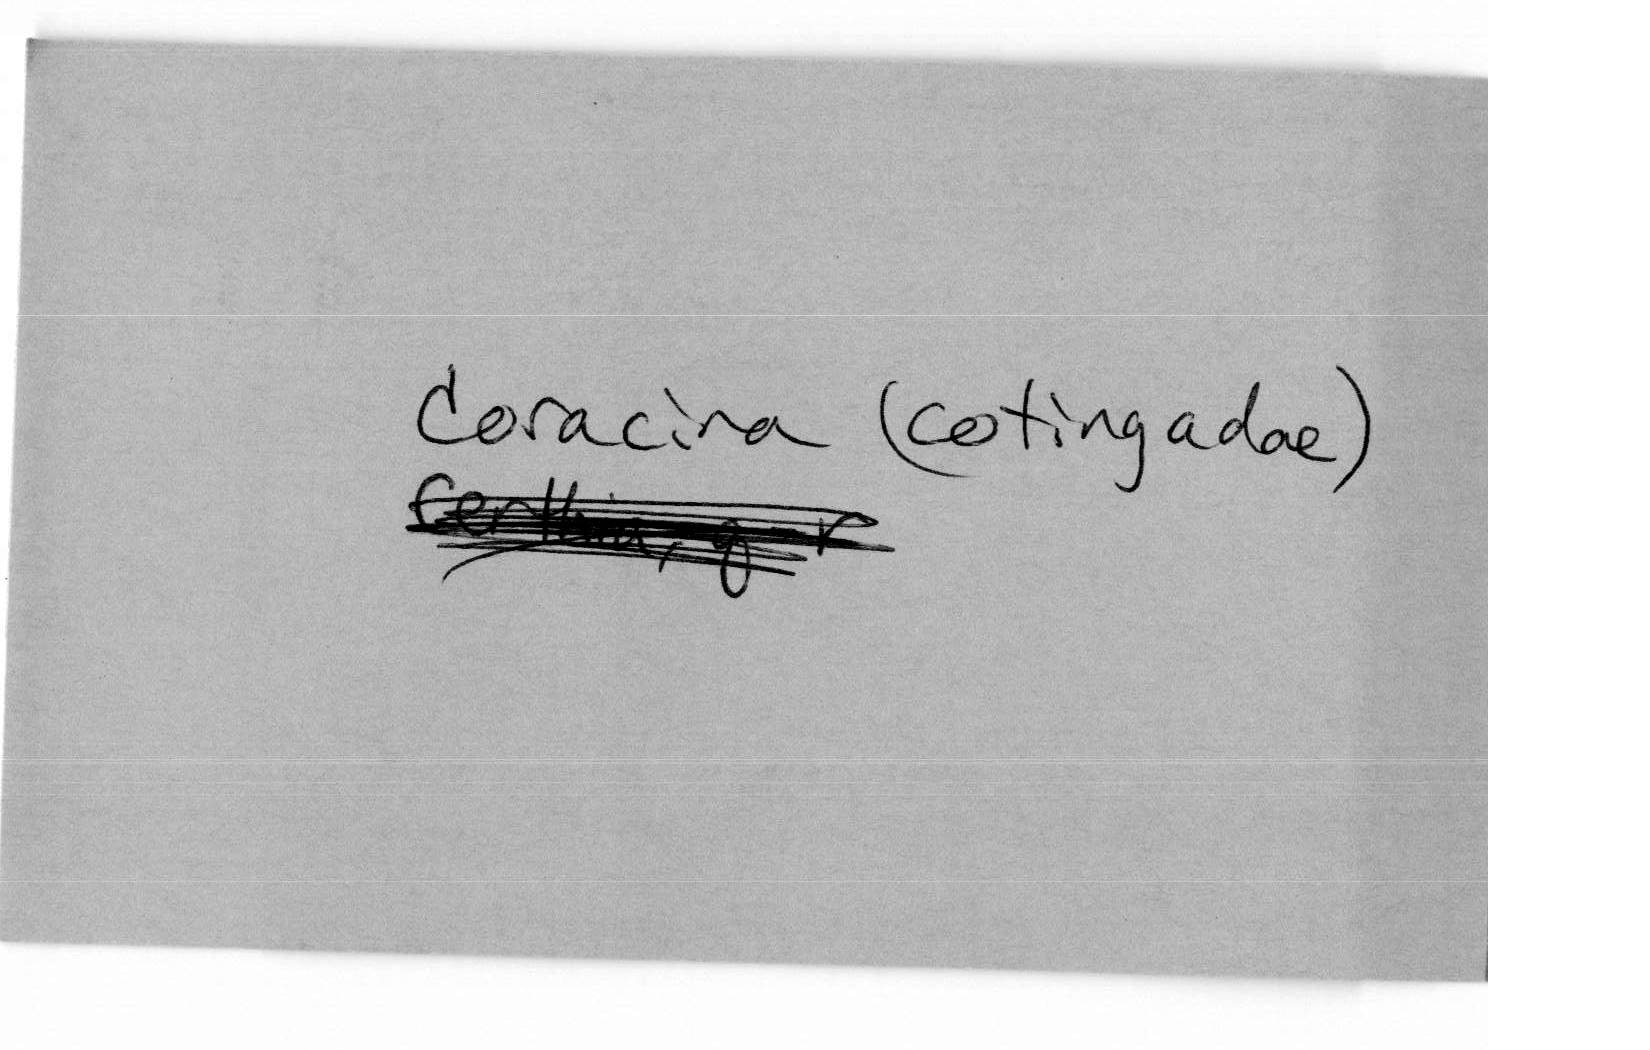 Coracina (cotingadae)